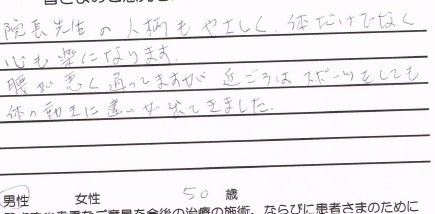 院長先生の人柄もやさしく、体だけでなく
心も楽になります。
腰が悪く通ってますが近ごろはスポーツをしても
体の動きに違いが出てきました。
男性 女性 50 歳
ご意見を今後の治療の施術、ならびに患者さまのために